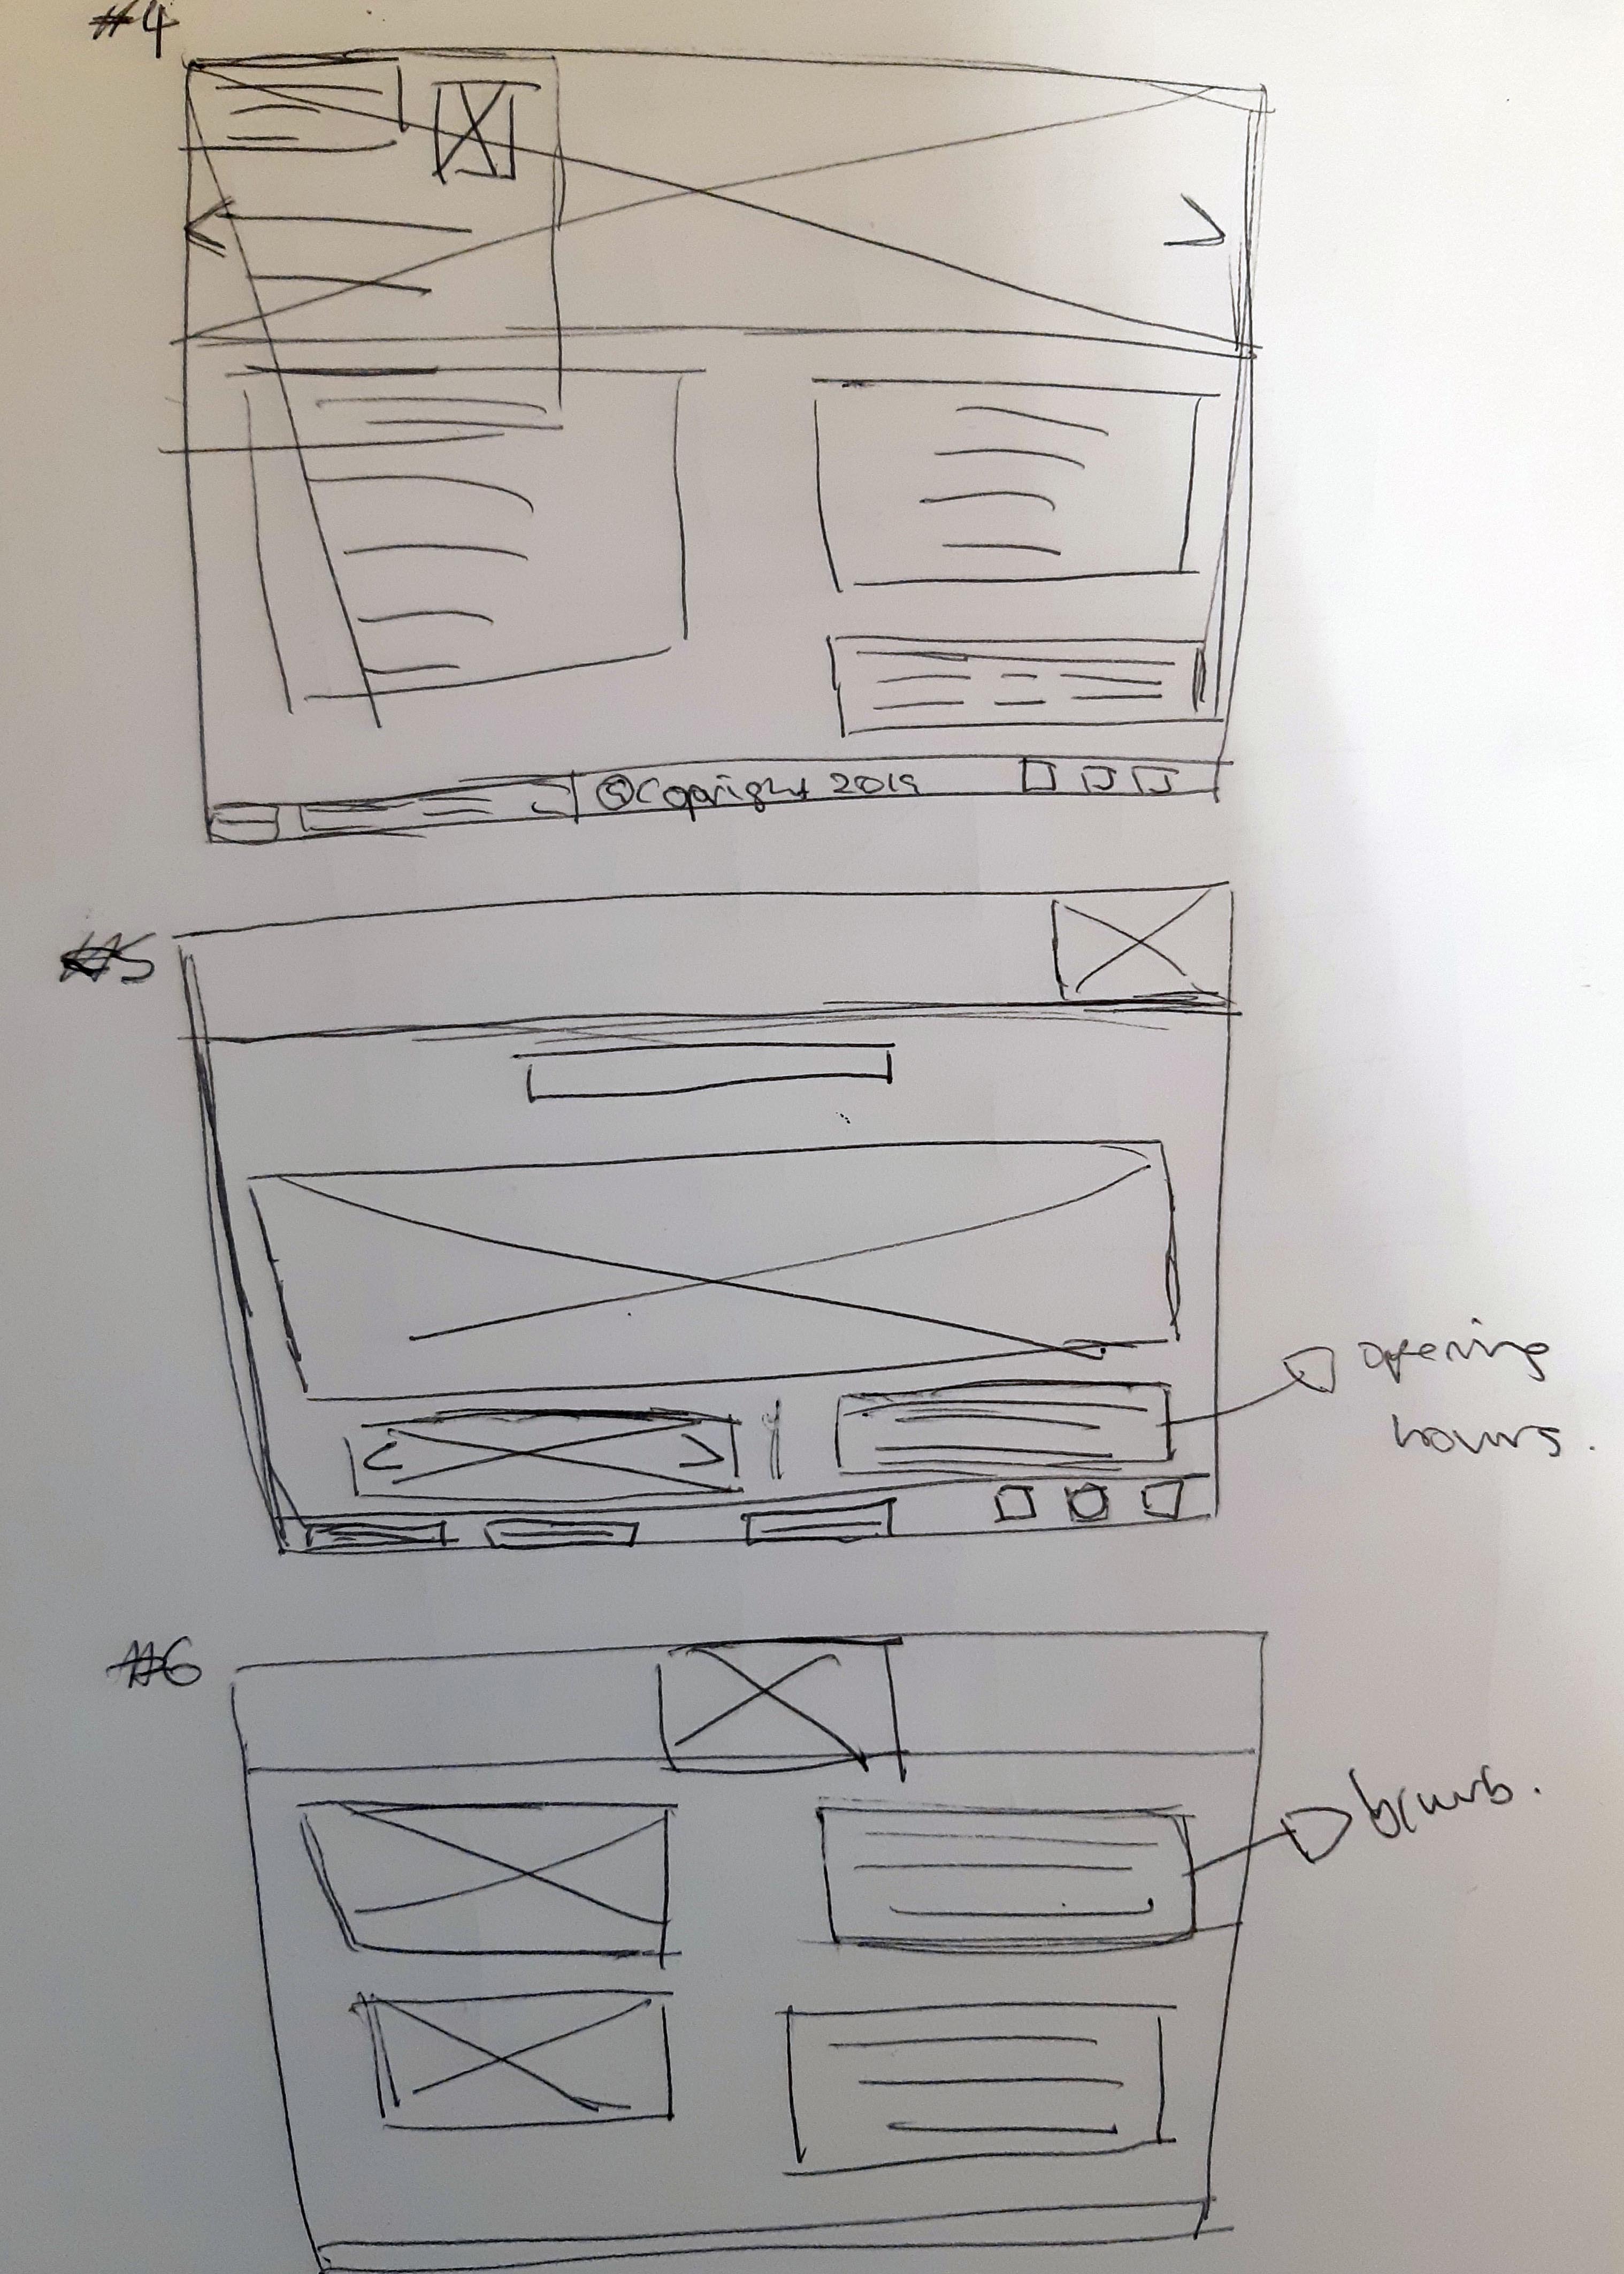 #4
©Copyright 2019
#5
opening
hours.
#6